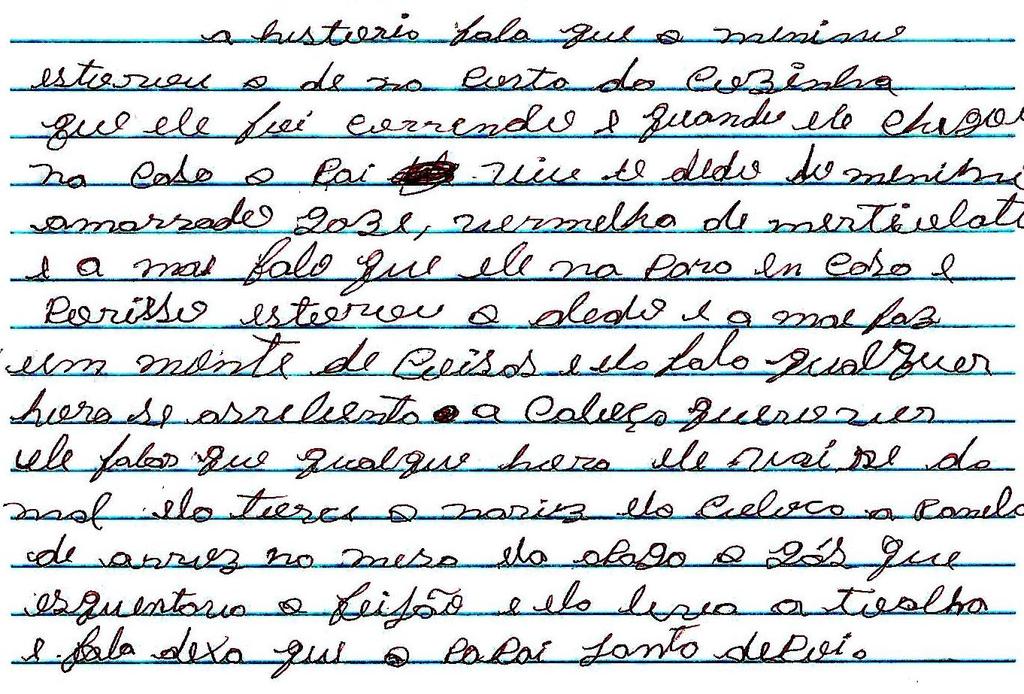 a historia fala que o menino
estorou o de no corto da cozinha
que ele foi correndo e quando ele chegou
na casa o pai viu o dedo do menino
amarrado gaze, vermelha de mertiolati
e a mae falo que ele na para en casa e
porisso estorou o dedo e a mae faz
um monte de coisas e ela fala qualquer
hora se arrebenta a cabeça quero ver
ele falar que qualque hora ele vai se da
mal ela torce o nariz ela coloca a panela
de arroz na mesa ela apaga o gás que
esquentava o feijão e ela leva a toalha
e fala dexa que o papai janta depois